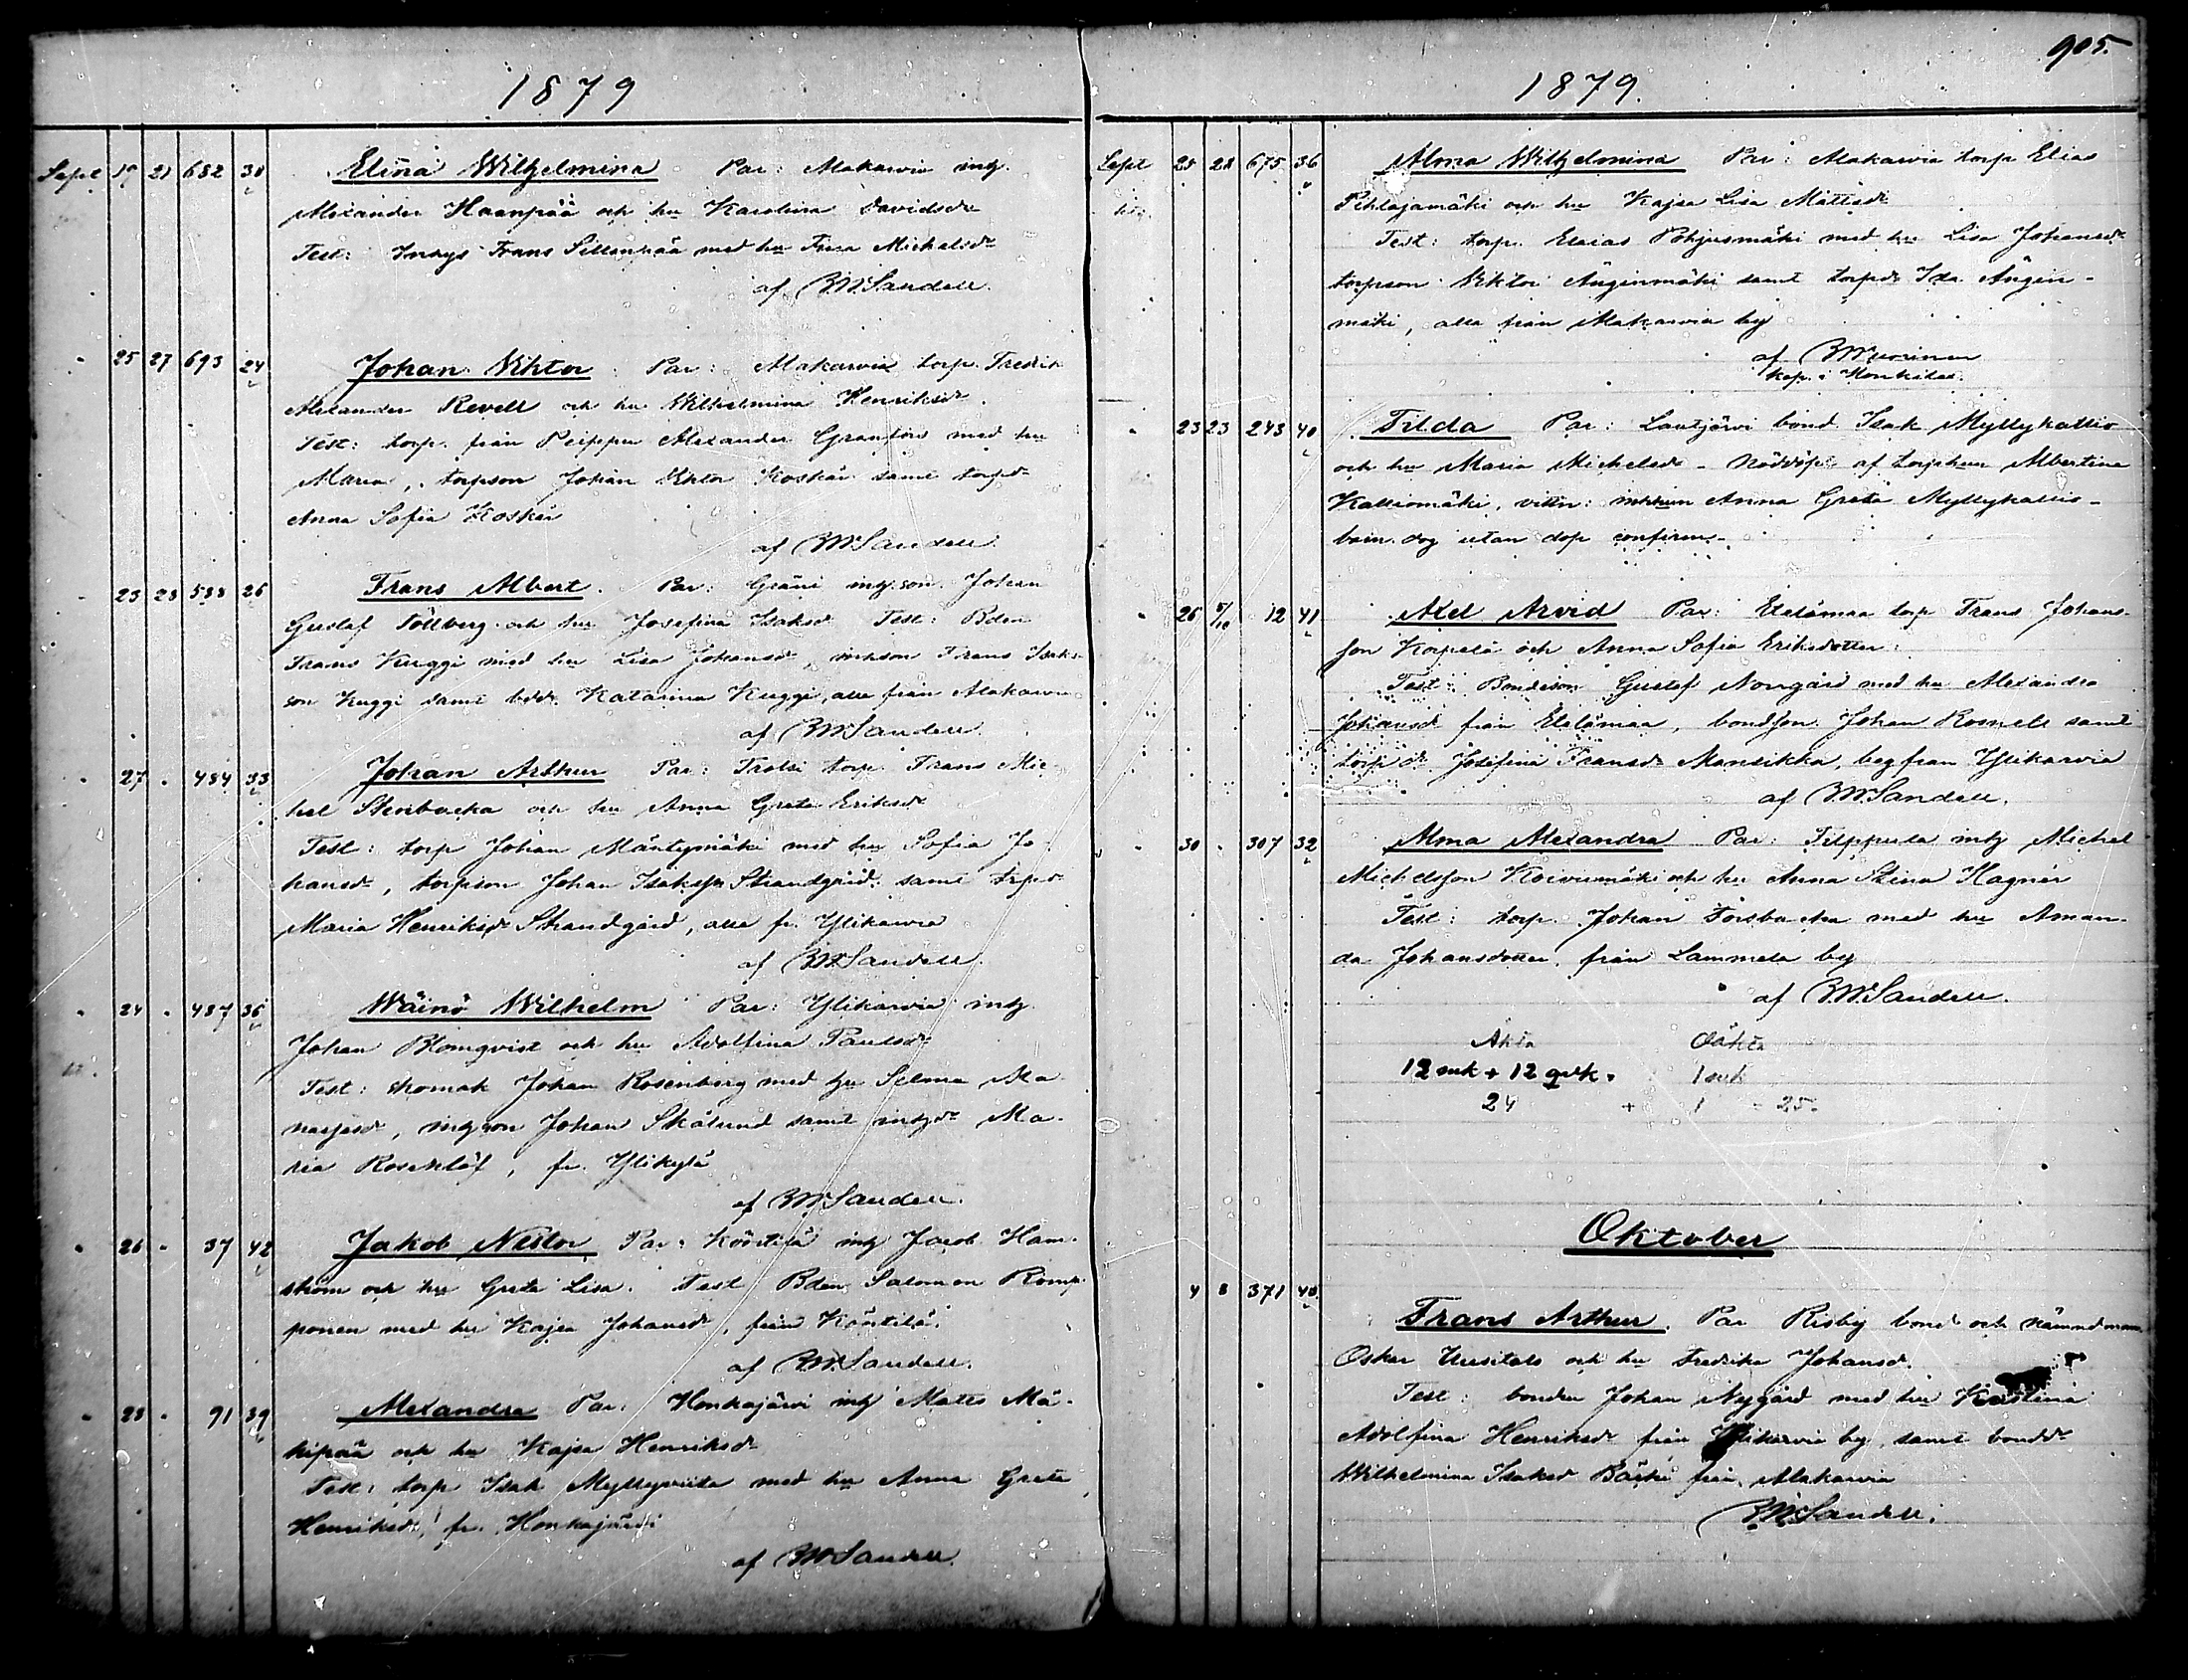 905.
1879
Sept 19 21 682 38 Elina Wilhelmina Par: Alakarvia intg.
Alexander Haanpää och hu Karolina Davidsdr
Test: Inhys Frans Sillanpää med hu Michelsdr
af Sandell.
25 27 693 24 Johan Viktor Par: Alakarvia torp. Fredrik
Alexander Revell och hu Wilhelmina Henriksdr.
Test: torp. från Peippu Alexander Granfors med hu
Maria, torpson Johan Viktor Koskär samt torpdr
Anna Sofia Koskär
af Sandell.
23 28 588 26 Frans Albert. Par: Gräni intg. son Johan
Gustaf Töllberg och hu Josefina Isaksd Test: Bden
Frans Kuggi med hu Lisa Johansdr, inhson Frans Isaks-
son Kuggi samt bddr. Katarina Kuggi, alla från Alakarvia
af Sandell.
27 " 484 33 Johan Arthur Par: Trolsi torp. Frans Mic-
hel Stenbacka och hu Anna Greta Eriksdr
Test: torp Johan Mäntymäki med hu Sofia Jo-
hansdr, torpson Johan Isaksson Strandgård samt torpdr
Maria Henriksdr Strandgård, alla fr. Ylikarvia
af Sandell.
24 " 487 35 Wäinö Wilhelm Par: Ylikarvia intg
Johan Blomqvist och hu Adolfina Paulsdr
Test: skomak Johan Rosenberg med hu Selma Ma-
nassesdr, intgson Johan Skälund samt intgdr Ma-
ria Rosenlöf, fr. Ylikylä
af Sandell.
26 " 37 42 Jakob Nestor Par: Köörtilä intg Jacob Ham-
ström och hu Greta Lisa. Test Bden Salomon Romp-
ponen med hu Kajsa Johansdr, från Köörtilä.
af Sandell.
28 " 91 39 Alexandra Par: Honkajärvi intg Matts Mä-
kipää och hu Kajsa Henriksdr
Test: torp Isak Myllyviita med hu Anna Greta
Henriksdr, fr. Honkajärvi
af Sandell.
1879.
Sept 25 28 675 36 Alma Wilhelmina Par: Alakarvia torp Elias
Pihlajamäki och hu Kajsa Lisa Mattsdr
Test: torp. Elias Pohjusmäki med hu Lisa Johansdr
torpson Viktor Äuginmäki samt torpdr Ida Äugin-
mäki, alla från Alakarvia by
af Wuorinen
kap. i Honkilax.
" 23 23 243 40 Tilda Par: Lautjärvi bond. Isak Myllykallio
och hu Maria Michelsdr - Nöddöpt af torphun Albertina
Kalliomäki, vittn: inhhun Anna Greta Myllykallio-
barn. dog utan dop confirm-
" 26 5/10 12 41 Axel Arvid Par: Etelämaa torp Frans Johans-
son Korpela och Anna Sofia Eriksdotter.
Test: Bondeson Gustaf Norrgård med hu Alexandra
Johansdr från Etelämaa, bondson Johan Rosnell samt
torpdr Josefina Fransdr Mansikka, beg från Ylikarvia
af Sandell.
" 30 " 307 32 Alma Alexandra Par: Filppula intg Michel
Michelsson Koivumäki och hu Anna Stina Hagnér
Test: torp. Johan Forsbacka med hu Aman-
da Johansdotter, från Lammela by
af Sandell.
Äkta Oäkta
12 mk + 12 qvk. 1 mk
24 + 1 = 25.
Oktober
4 8 371 40 Frans Arthur. Par Risby bond. och nämndman
Oskar Uusitalo och hu Fredrika Johansd.
Test: bonden Johan Nygård med hu Karolina
Adolfina Henriksdr från Ylikarvia by, samt bonddr
Wilhelmina Isaksd Bäcki från Alakarvia
Sandell.